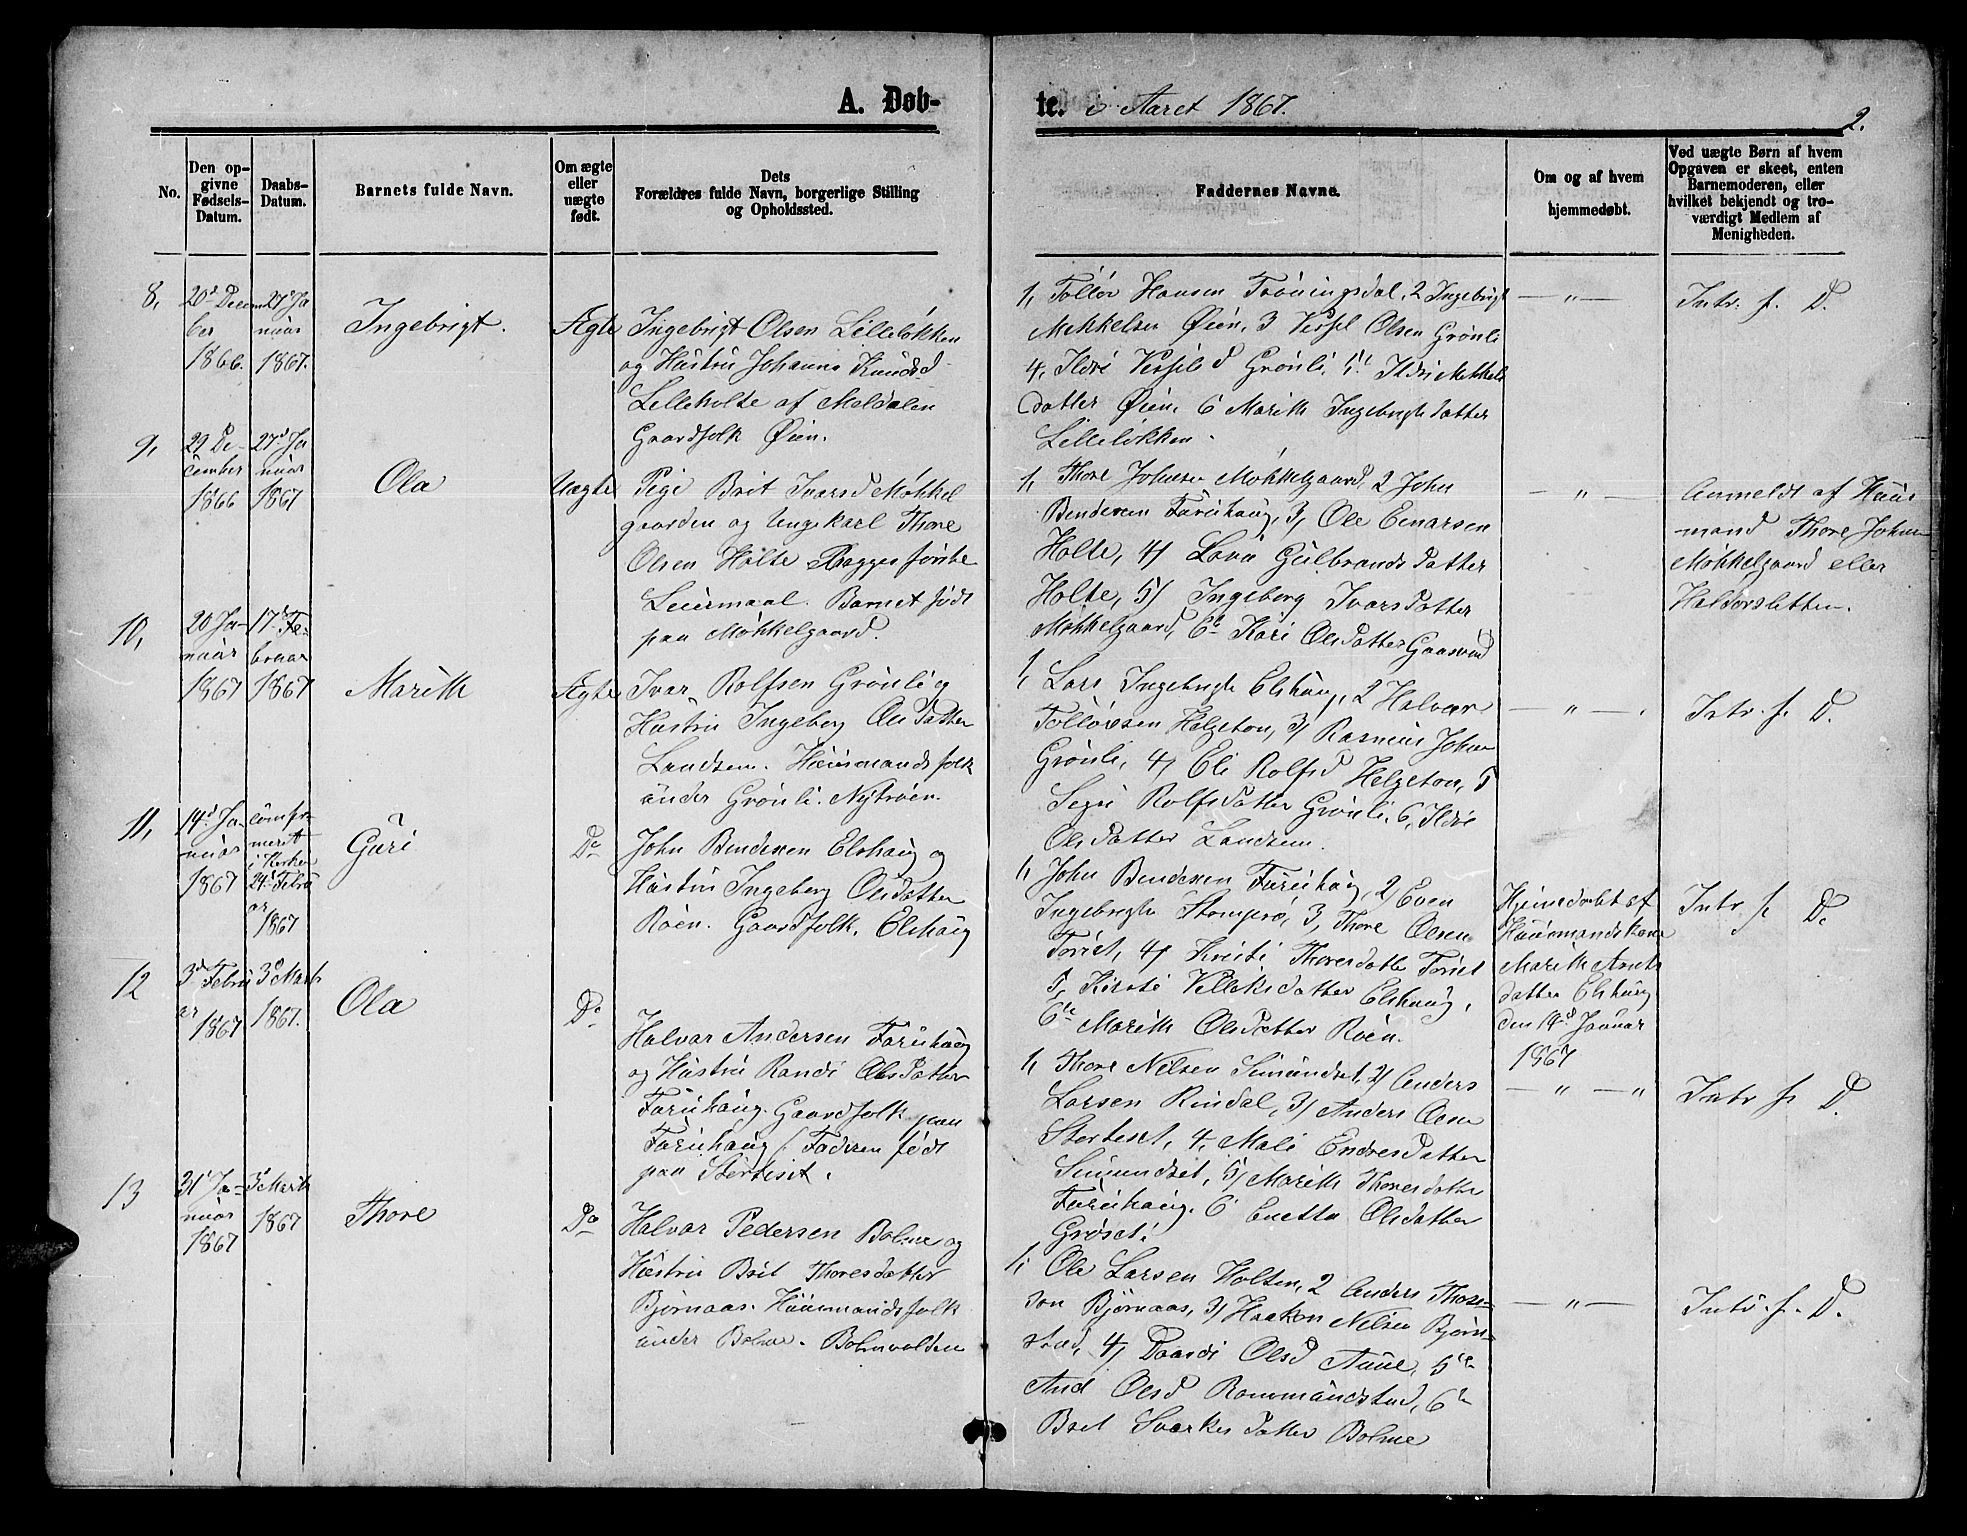 A. Døb-
te. i Aaret 1867.
2.
No.
Den op-
givne
Fødsels-
Datum.
Daabs-
Datum.
Barnets fulde Navn.
Om ægte
eller
uægte
født.
Dets
Forældres fulde Navn, borgerlige Stilling
og Opholdssted.
Faddernes Navne.
Om og af hvem
hjemmedøbt.
Ved uægte Børn af hvem
Opgaven er skeet, enten
Barnemoderen, eller
hvilket bekjendt og tro-
værdigt Medlem af
Menigheden.
8,
20d Decem
ber
1866.
27d Ja
nuar
1867.
Ingebrigt.
Ægte
Ingebrigt Olsen Lilleløkken
og Hustru Johanna Knudsd
Lilleholte af Meldalen
Gaardfolk Øien.
1, Tollov Hansen Trøningsdal, 2 Ingebrigt
Mekkelsen Øien, 3 Vessel Olsen Grønli
4, Ildri Vesseld Grønli, 5, Ildri Mekkels
datter Øien, 6 Marith Ingebrigtsdatter
Lilleløkken.
— " —
Intr. f. D.
9,
29 De-
cember
1866
27d Ja
nuar
1867
Ola
Uægte
Pige Brit Ivarsd Møkkel
gaarden og Ungekarl Thore
Olsen Holte Begges første
Leiermaal. Barnet født
paa Møkkelgaard.
1, Thore Johnsen Møkkelgaard, 2 John
Bendixen Furuhaug, 3, Ole Einarsen
Holte, 4) Lava Gulbrandsdatter
Holte, 5) Ingeborg Ivarsdatter
Møkkelgaard, 6 Kari Olsdatter Gaasvand
— " —
Anmeldt af Huus
mand Thore Johnsen
Møkkelgaard eller
Haldorsletten.
10,
20 Ja-
nuar
1867
17d Fe-
bruar
1867
Marith
Ægte
Ivar Rolfsen Grønli og
Hustru Ingeborg Olsdatter
Landsem. Huusmandsfolk
under Grønli. Nytrøen.
1, Lars Ingebrigts Elshaug, 2 Halvar
Tollovsen Helgeton, 3) Rasmus Johns
Grønli, 4) Eli Rolfsd Helgeton, 5
Segri Rolfsdatter Grønli, 6, Ildri
Olsdatter Landsem.
— " — .
Intr. f. D.
11,
14d Ja-
nuar
1867
comfir-
meret
i Kirken
24d Febru
ar
1867
Guri
Do
John Bendixen Elshaug og
Hustru Ingeborg Olsdatter
Røen. Gaardfolk. Elshaug
1, John Bendixen Furuhaug, 2) Even
Ingebrigts Stomprø, 3, Thore Olsen
Toriset, 4) Kristi Thoresdatter Toriset
5, Kirsti Velleksdatter Elshaug,
6te Marith Olsdatter Røen.
Hjemmedøbt af
Huusmandskone
Marith Arnts
datter Elshaug
den 14d Januar
1867
Intr f. D.
12
3d Febru
ar
1867
3d Marts
1867.
Ola
Do
Halvar Andersen Furuhaug
og Hustru Randi Olsdatter
Furuhaug. Gaardfolk paa
Furuhaug (Faderen født
paa Stortiset.
1, Thore Nilsen Simundset, 2) Anders
Larsen Rindal, 3) Anders Olsen
Stortiset, 4, Mali Endresdatter
Simundset, 5) Marith Thoresdatter
Furuhaug. 6 Enetta Olsdatter
Grøset.
— " — "
Intr f. D.
13
31d Ja-
nuar
1867
3d Marts
1867
Thore
Do
Halvar Pedersen Bolme og
Hustru Brit Thoresdatter
Bjørnaas. Huusmandsfolk
under Bolme. Bolmvolden
1, Ole Larsen Holten, 2 Anders Thore-
son Bjørnaas, 3) Haakon Nilsen Bjørn-
stad, 4) Daardi Olsd Aune, 5te
And Olsd Rommundstad, 6te
Brit Sverkesdatter Bolme
— " —
Intr. f. D.